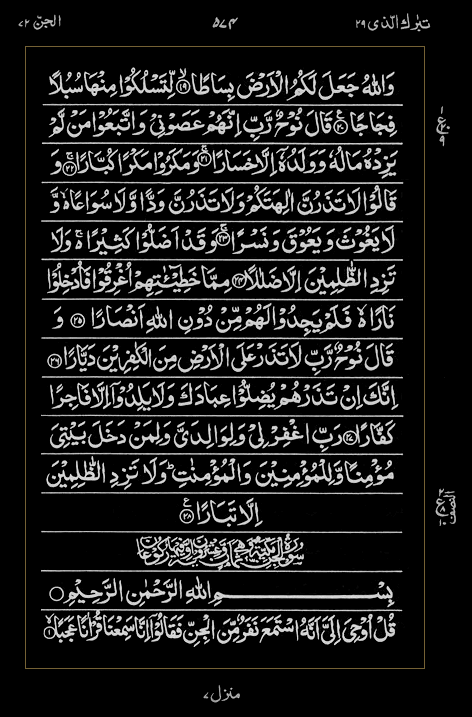 تبٰرك الّذى ٢٩ ٥٧٤ الجنّ ٧٢
وَاللّٰهُ جَعَلَ لَكُمُ الْاَرْضَ بِسَاطًا ۙ﴿۱۹﴾ لِّتَسْلُكُوْا مِنْهَا سُبُلًا
فِجَاجًا ﴿۲۰﴾ قَالَ نُوْحٌ رَّبِّ اِنَّهُمْ عَصَوْنِيْ وَاتَّبَعُوْا مَنْ لَّمْ
يَزِدْهُ مَالُهٗ وَوَلَدُهٗۤ اِلَّا خَسَارًا ﴿۲۱﴾ وَمَكَرُوْا مَكْرًا كُبَّارًا ﴿۲۲﴾ وَ
قَالُوْا لَا تَذَرُنَّ اٰلِهَتَكُمْ وَلَا تَذَرُنَّ وَدًّا وَّلَا سُوَاعًا ۙ۬ وَّ
لَا يَغُوْثَ وَيَعُوْقَ وَنَسْرًا ﴿۲۳﴾ وَقَدْ اَضَلُّوْا كَثِيْرًا ۚ۬ وَلَا
تَزِدِ الظّٰلِمِيْنَ اِلَّا ضَلٰلًا ﴿۲۴﴾ مِمَّا خَطِيْٓـٰٔتِهِمْ اُغْرِقُوْا فَاُدْخِلُوْا
نَارًا ۙ۬ فَلَمْ يَجِدُوْا لَهُمْ مِّنْ دُوْنِ اللّٰهِ اَنْصَارًا ﴿۲۵﴾ وَ
قَالَ نُوْحٌ رَّبِّ لَا تَذَرْ عَلَى الْاَرْضِ مِنَ الْكٰفِرِيْنَ دَيَّارًا ﴿۲۶﴾
اِنَّكَ اِنْ تَذَرْهُمْ يُضِلُّوْا عِبَادَكَ وَلَا يَلِدُوْۤا اِلَّا فَاجِرًا
كَفَّارًا ﴿۲۷﴾ رَبِّ اغْفِرْ لِيْ وَلِوَالِدَيَّ وَلِمَنْ دَخَلَ بَيْتِيَ
مُؤْمِنًا وَّلِلْمُؤْمِنِيْنَ وَالْمُؤْمِنٰتِ ؕ وَلَا تَزِدِ الظّٰلِمِيْنَ
اِلَّا تَبَارًا ﴿۲۸﴾
سُوْرَةُ الْجِنِّ مَكِّيَّةٌ وَّهِيَ ثَمَانٌ وَّعِشْرُوْنَ اٰيَةً وَّفِيْهَا رُكُوْعَانِ
بِسْمِ اللّٰهِ الرَّحْمٰنِ الرَّحِيْمِ
قُلْ اُوْحِيَ اِلَيَّ اَنَّهُ اسْتَمَعَ نَفَرٌ مِّنَ الْجِنِّ فَقَالُوْۤا اِنَّا سَمِعْنَا قُرْاٰنًا عَجَبًا ۙ﴿۱﴾
النصف
منزل ٧